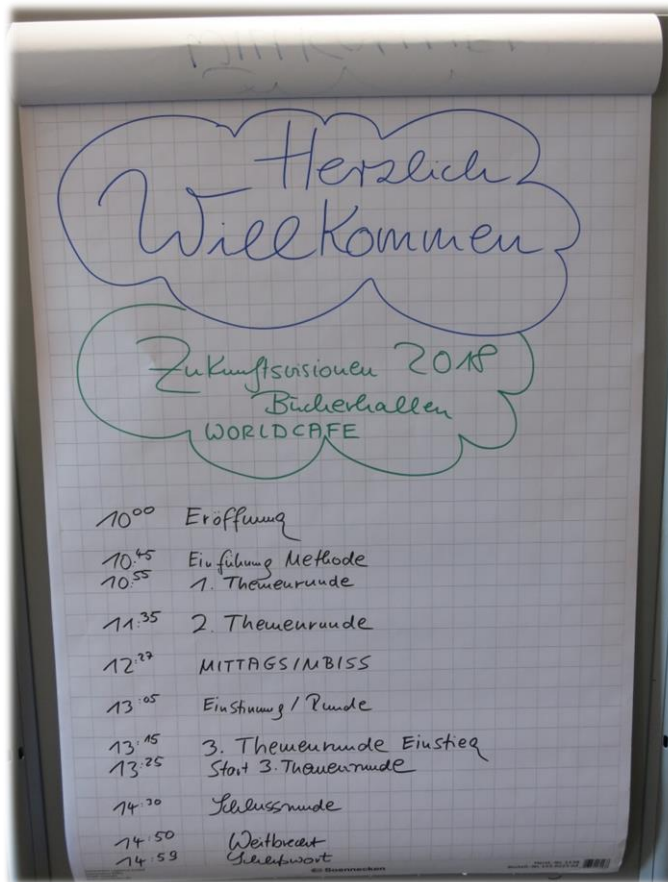 Herzlich
Willkommen
Zukunftsvisionen 2018
Bücherhallen
WORLDCAFE
10⁰⁰ Eröffnung
10:45 Einführung Methode
10:55 1. Themenrunde
11:35 2. Themenrunde
12:27 MITTAGSIMBISS
13:05 Einstimmung / Runde
13:15 3. Themenrunde Einstieg
13:25 Start 3. Themenrunde
14:30 Schlussrunde
14:50 Weitbrecht
14:59 Schlußwort
Soennecken